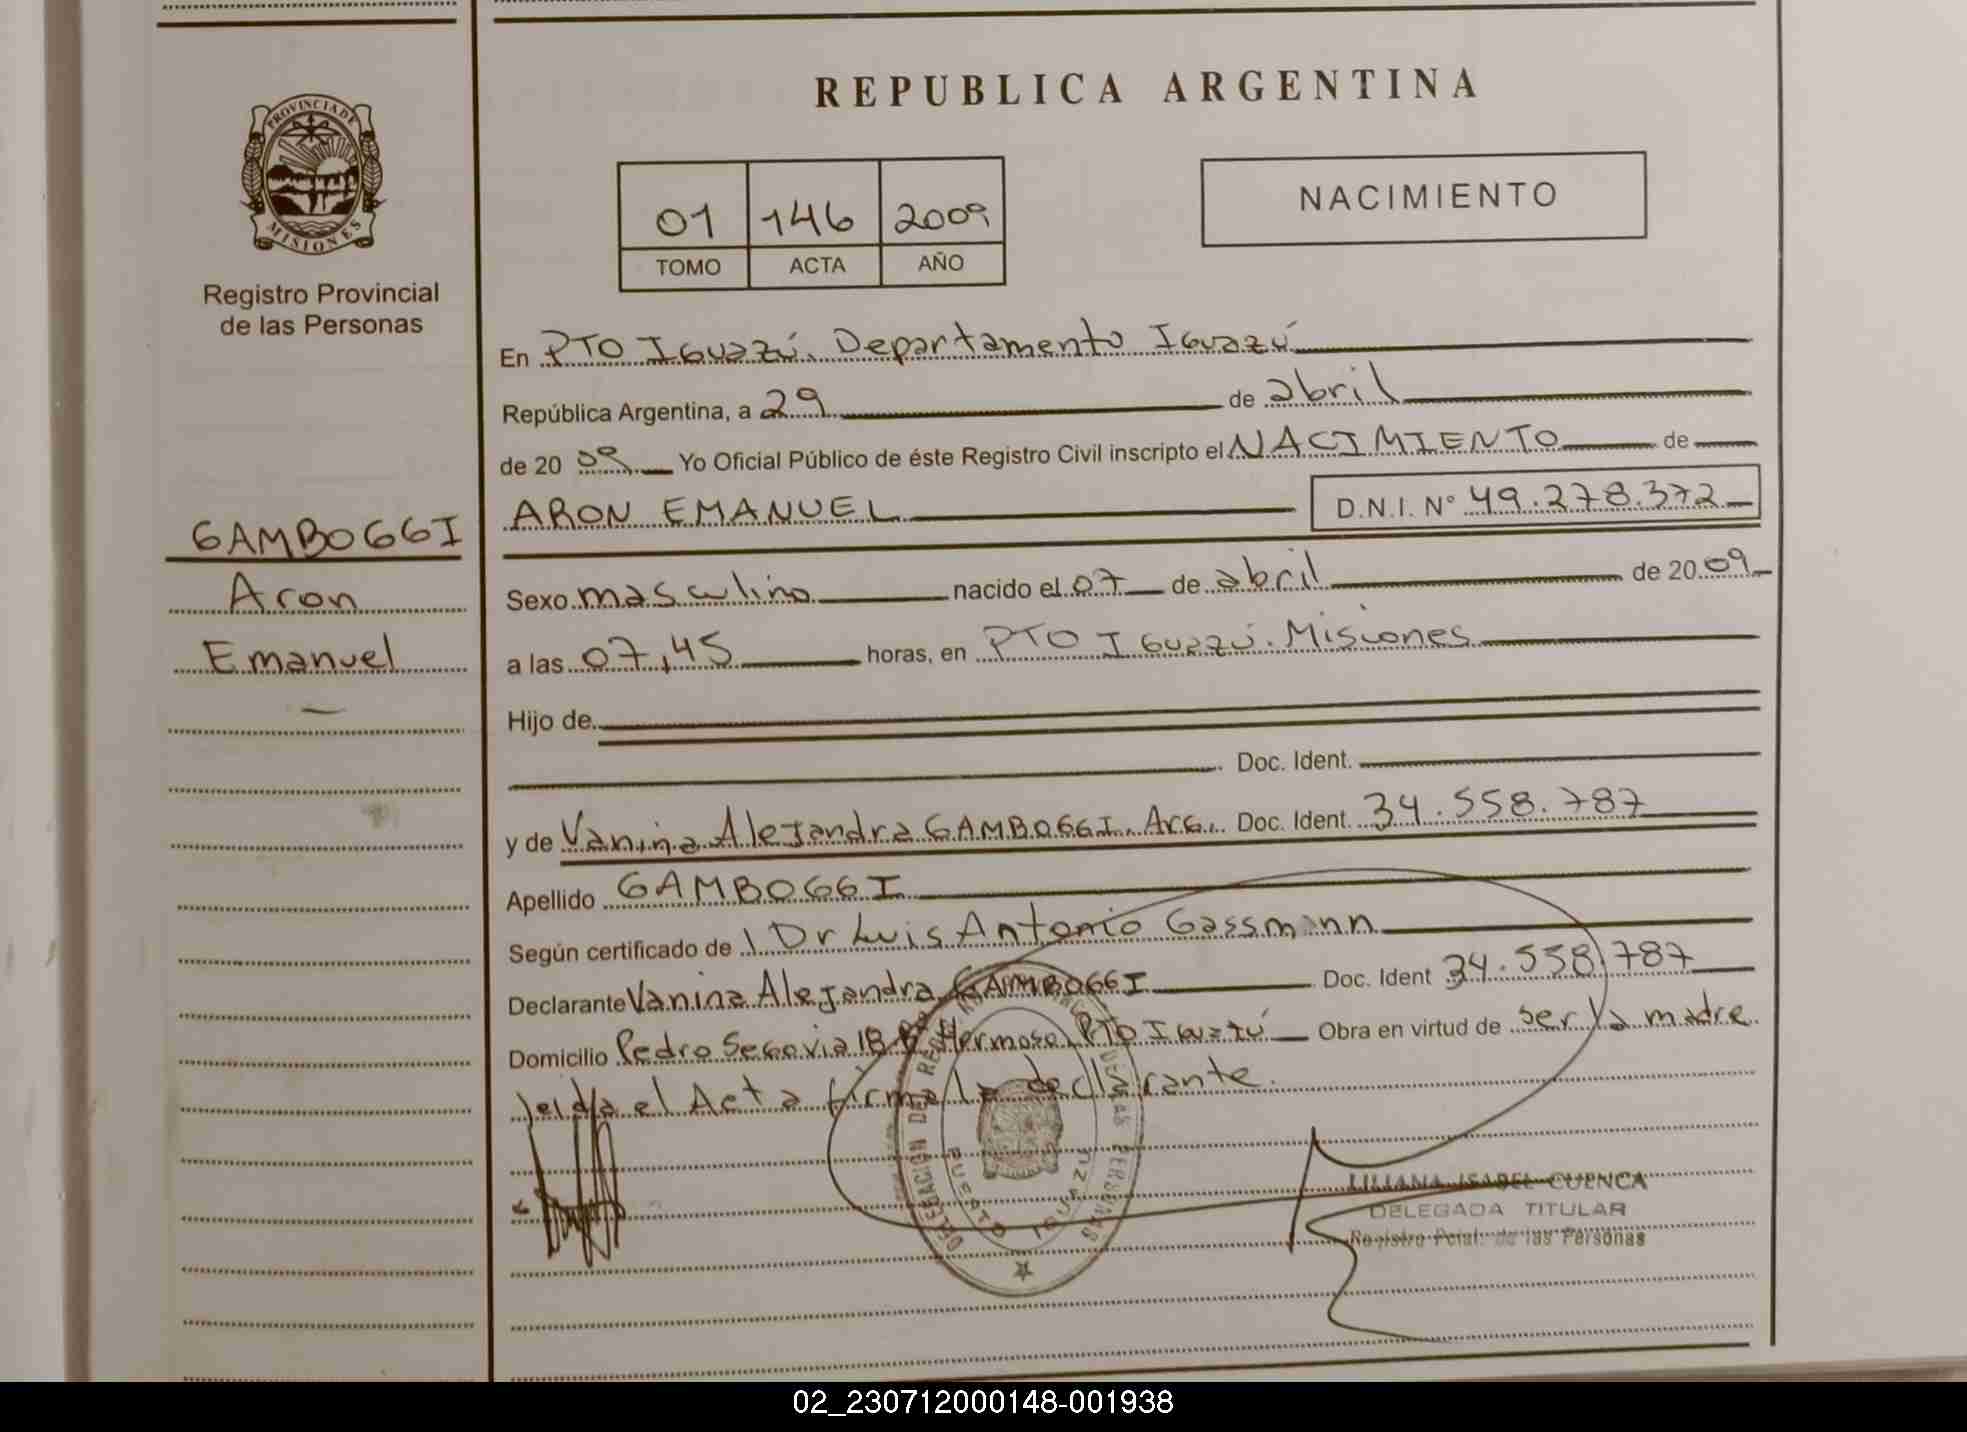 REPUBLICA ARGENTINA
PROVINCIA DE MISIONES
Registro Provincial
de las Personas
01 146 2009
TOMO ACTA AÑO
NACIMIENTO
GAMBOGGI
Aron
Emanuel
En PTO Iguazú. Departamento Iguazú
República Argentina, a 29 de abril
de 20 09 Yo Oficial Público de éste Registro Civil inscripto el NACIMIENTO de
ARON EMANUEL D.N.I. N° 49.278.372
Sexo masculino nacido el 07 de abril de 20 09
a las 07,45 horas, en PTO Iguazú. Misiones
Hijo de
Doc. Ident.
y de Vanina Alejandra GAMBOGGI. Arg. Doc. Ident. 34.558.787
Apellido GAMBOGGI
Según certificado de Dr Luis Antonio Gassmann
Declarante Vanina Alejandra GAMBOGGI Doc. Ident 34.558.787
Domicilio Pedro Segovia 18 Hermoso PTO Iguazú Obra en virtud de ser la madre
leida el Acta firma la declarante.
DELEGACIÓN DEL REG PERSONAS
PUERTO IGUAZU
LILIANA ISABEL CUENCA
DELEGADA TITULAR
Registro Pcial. de las Personas
02_230712000148-001938